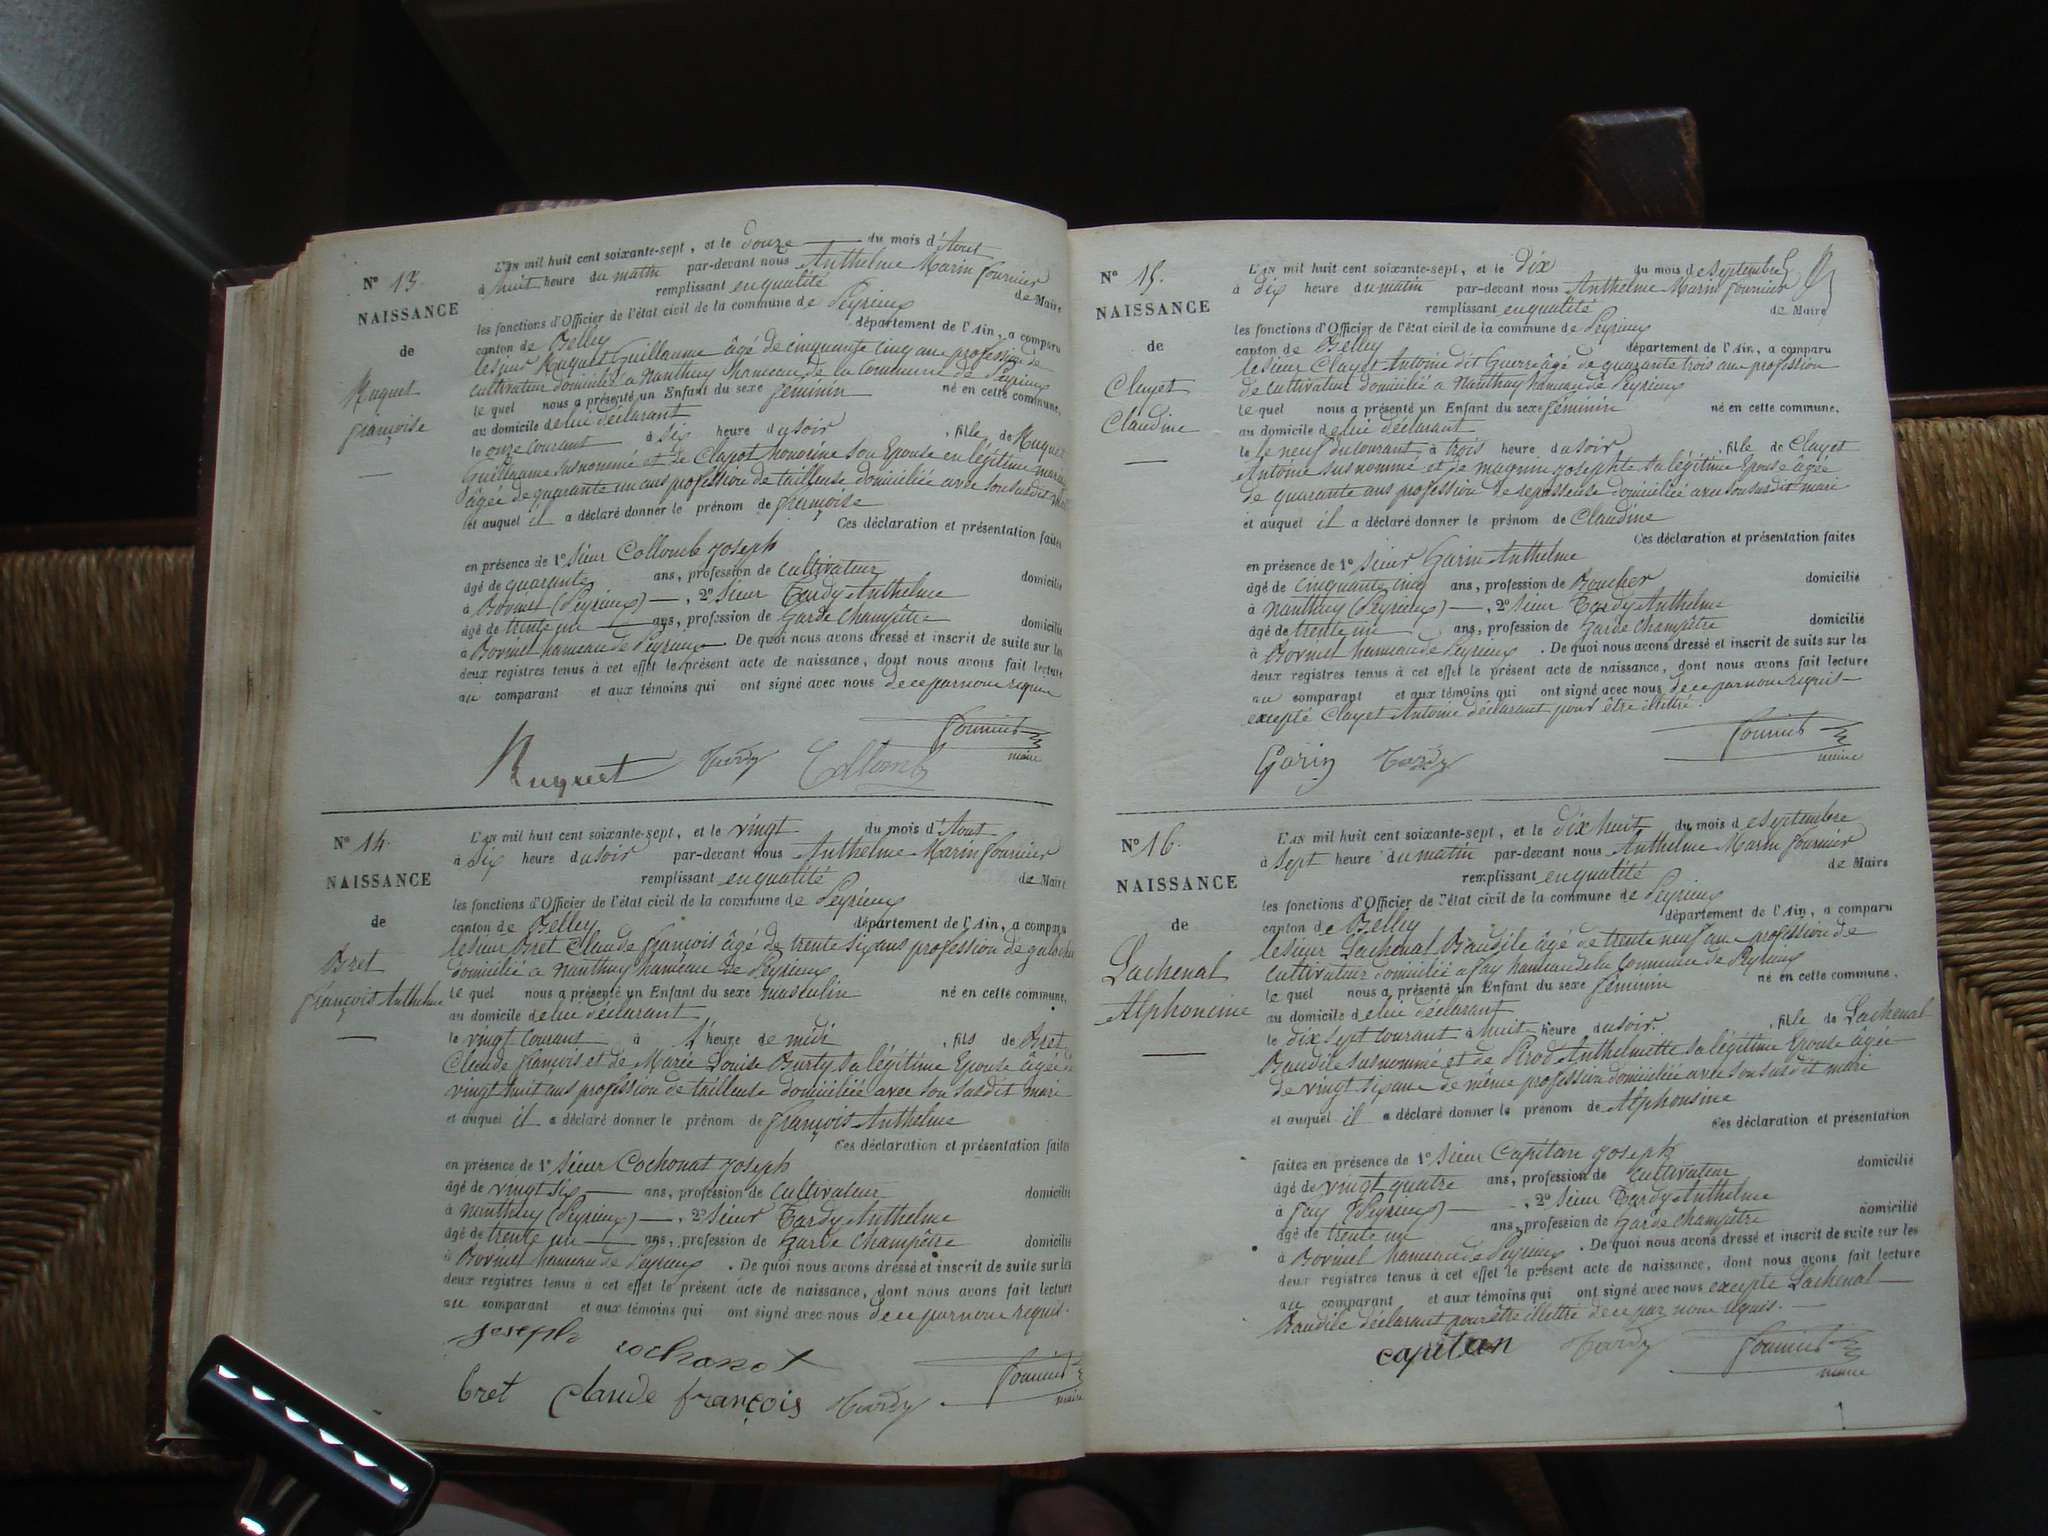 N° 13.
NAISSANCE
de
Ruquet
françoise
L'AN mil huit cent soixante-sept, et le douze du mois d'Aout
à huit heure du matin par-devant nous Anthelme Marin fournier
remplissant en qualité de Maire
les fonctions d'Officier de l'état civil de la commune de Peyrieux
canton de Belley département de l'Ain, a comparu
le sieur Ruquet Guillaume âgé de cinquante cinq ans profession de
cultivateur domicilié a Nanthuy hameau de la commune de Peyrieux
le quel nous a présenté un Enfant du sexe féminin né en cette commune,
au domicile de lui déclarant
le onze courant à six heure du soir, fille de Ruquet
Guillaume susnommé et de Clayet honorine son Epouse en légitime
âgée de quarante un ans profession de tailleuse domiciliée avec son susdit
et auquel il a déclaré donner le prénom de françoise
Ces déclaration et présentation faites
en présence de 1° sieur Collomb Joseph
âgé de quarante ans, profession de cultivateur domicilié
à Bovinel (Peyrieux) —, 2° sieur Tardy Anthelme
âgé de trente un ans, profession de Garde Champêtre domicilié
à Bovinel hameau de Peyrieux. De quoi nous avons dressé et inscrit de suite sur les
deux registres tenus à cet effet le présent acte de naissance, dont nous avons fait lecture
au comparant et aux témoins qui ont signé avec nous de ce par nous requis
Fournier
maire
Ruquet Tardy Collomb
N° 14.
NAISSANCE
de
Bret
françois Anthelme
L'AN mil huit cent soixante-sept, et le vingt du mois d'Aout
à six heure du soir par-devant nous Anthelme Marin fournier
remplissant en qualité de Maire
les fonctions d'Officier de l'état civil de la commune de Peyrieux
canton de Belley département de l'Ain, a comparu
le sieur Bret Claude françois âgé de trente six ans profession de
domicilié a Nanthuy hameau de Peyrieux
le quel nous a présenté un Enfant du sexe masculin né en cette commune,
au domicile de lui déclarant
le vingt courant à 1 heure de midi, fils de Bret
Claude françois et de Marie Louise Burty sa légitime Epouse âgée de
vingt huit ans profession de tailleuse domiciliée avec son susdit mari
et auquel il a déclaré donner le prénom de françois Anthelme
Ces déclaration et présentation faites
en présence de 1° sieur Cochonat Joseph
âgé de vingt six — ans, profession de cultivateur domicilié
à Nanthuy (Peyrieux) —, 2° sieur Tardy Anthelme
âgé de trente un — ans, profession de Garde Champêtre domicilié
à Bovinel hameau de Peyrieux. De quoi nous avons dressé et inscrit de suite sur les
deux registres tenus à cet effet le présent acte de naissance, dont nous avons fait lecture
au comparant et aux témoins qui ont signé avec nous de ce par nous requis.
joseph cochonat
Fournier
maire
bret claude françois Tardy
N° 15.
NAISSANCE
de
Clayet
Claudine
L'AN mil huit cent soixante-sept, et le dix du mois de septembre
à dix heure du matin par-devant nous Anthelme Marin fournier
remplissant en qualité de Maire
les fonctions d'Officier de l'état civil de la commune de Peyrieux
canton de Belley département de l'Ain, a comparu
le sieur Clayet Antoine dit Guerre âgé de quarante trois ans profession
de cultivateur domicilié a Nanthuy hameau de Peyrieux
le quel nous a présenté un Enfant du sexe féminin né en cette commune,
au domicile de lui déclarant
le neuf du courant, à trois heure du soir, fille de Clayet
Antoine susnommé et de magnin josephte sa légitime Epouse âgée
de quarante ans profession de repasseuse domiciliée avec son susdit mari
et auquel il a déclaré donner le prénom de Claudine
Ces déclaration et présentation faites
en présence de 1° sieur Garin Anthelme
âgé de cinquante cinq ans, profession de Boucher domicilié
à Nanthuy (Peyrieux) —, 2° sieur Tardy Anthelme
âgé de trente un ans, profession de Garde Champêtre domicilié
à Bovinel hameau de Peyrieux. De quoi nous avons dressé et inscrit de suite sur les
deux registres tenus à cet effet le présent acte de naissance, dont nous avons fait lecture
au comparant et aux témoins qui ont signé avec nous de ce par nous requis
excepté Clayet Antoine déclarant pour être illettré.
Fournier
maire
Garin Tardy
N° 16.
NAISSANCE
de
Lachenal
Alphoncine
L'AN mil huit cent soixante-sept, et le dix huit du mois de septembre
à sept heure du matin par-devant nous Anthelme Marin fournier
remplissant en qualité de Maire
les fonctions d'Officier de l'état civil de la commune de Peyrieux
canton de Belley département de l'Ain, a comparu
le sieur Lachenal Baudile âgé de trente neuf ans profession de
cultivateur domicilié a fay hameau de la commune de Peyrieux
le quel nous a présenté un Enfant du sexe féminin né en cette commune,
au domicile de lui déclarant
le dix sept courant à huit heure du soir, fille de Lachenal
Baudile susnommé et de Pirod Anthelmette sa légitime Epouse âgée
de vingt six ans de même profession domiciliée avec son susdit mari
et auquel il a déclaré donner le prénom de Alphonsine
Ces déclaration et présentation
faites en présence de 1° sieur Capitan Joseph
âgé de vingt quatre ans, profession de cultivateur domicilié
à fay (Peyrieux) —, 2° sieur Tardy Anthelme
âgé de trente un ans, profession de Garde Champêtre domicilié
à Bovinel hameau de Peyrieux. De quoi nous avons dressé et inscrit de suite sur les
deux registres tenus à cet effet le présent acte de naissance, dont nous avons fait lecture
au comparant et aux témoins qui ont signé avec nous excepté Lachenal
Baudile déclarant pour être illettré de ce par nous requis.
capitan Tardy Fournier
maire